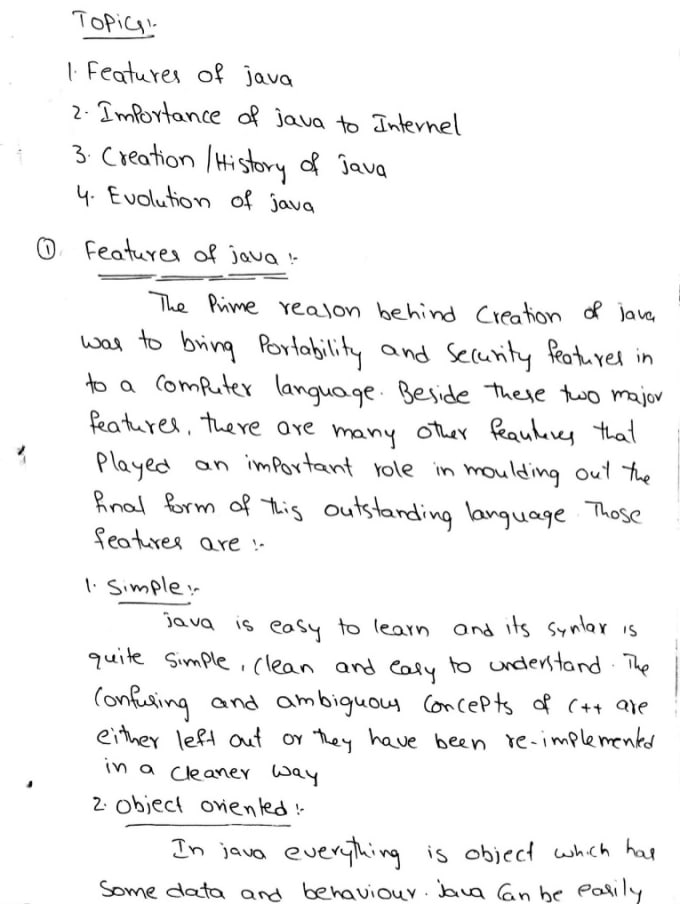 Topics:-
1. Features of java
2. Importance of java to Internel
3. Creation / History of java
4. Evolution of java
① Features of java :-
The Prime reason behind Creation of java
was to bring Portability and Security features in
to a Computer language. Beside these two major
features, there are many other feautures that
Played an important role in moulding out the
final form of this outstanding language. Those
features are :-
1. Simple:-
java is easy to learn and its syntax is
quite Simple, clean and easy to understand. The
Confusing and ambiguous Concepts of C++ are
either left out or they have been re-implemented
in a cleaner way
2. object oriented :-
In java everything is object which has
Some data and behaviour. Java Can be easily